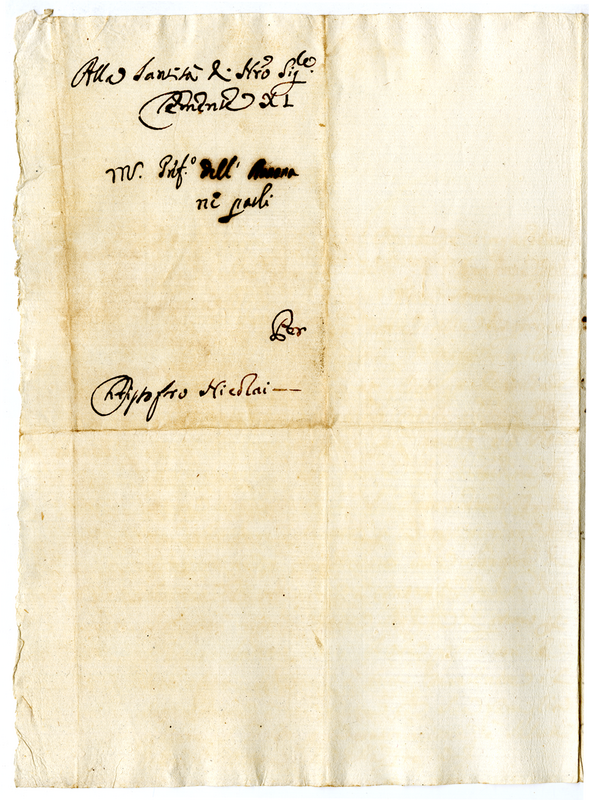 Alla Santità di Nr̃o Sig.re
Clemente XI
M. Pref.o dell' Annona
ne parli
Per
Christofro Nicolai